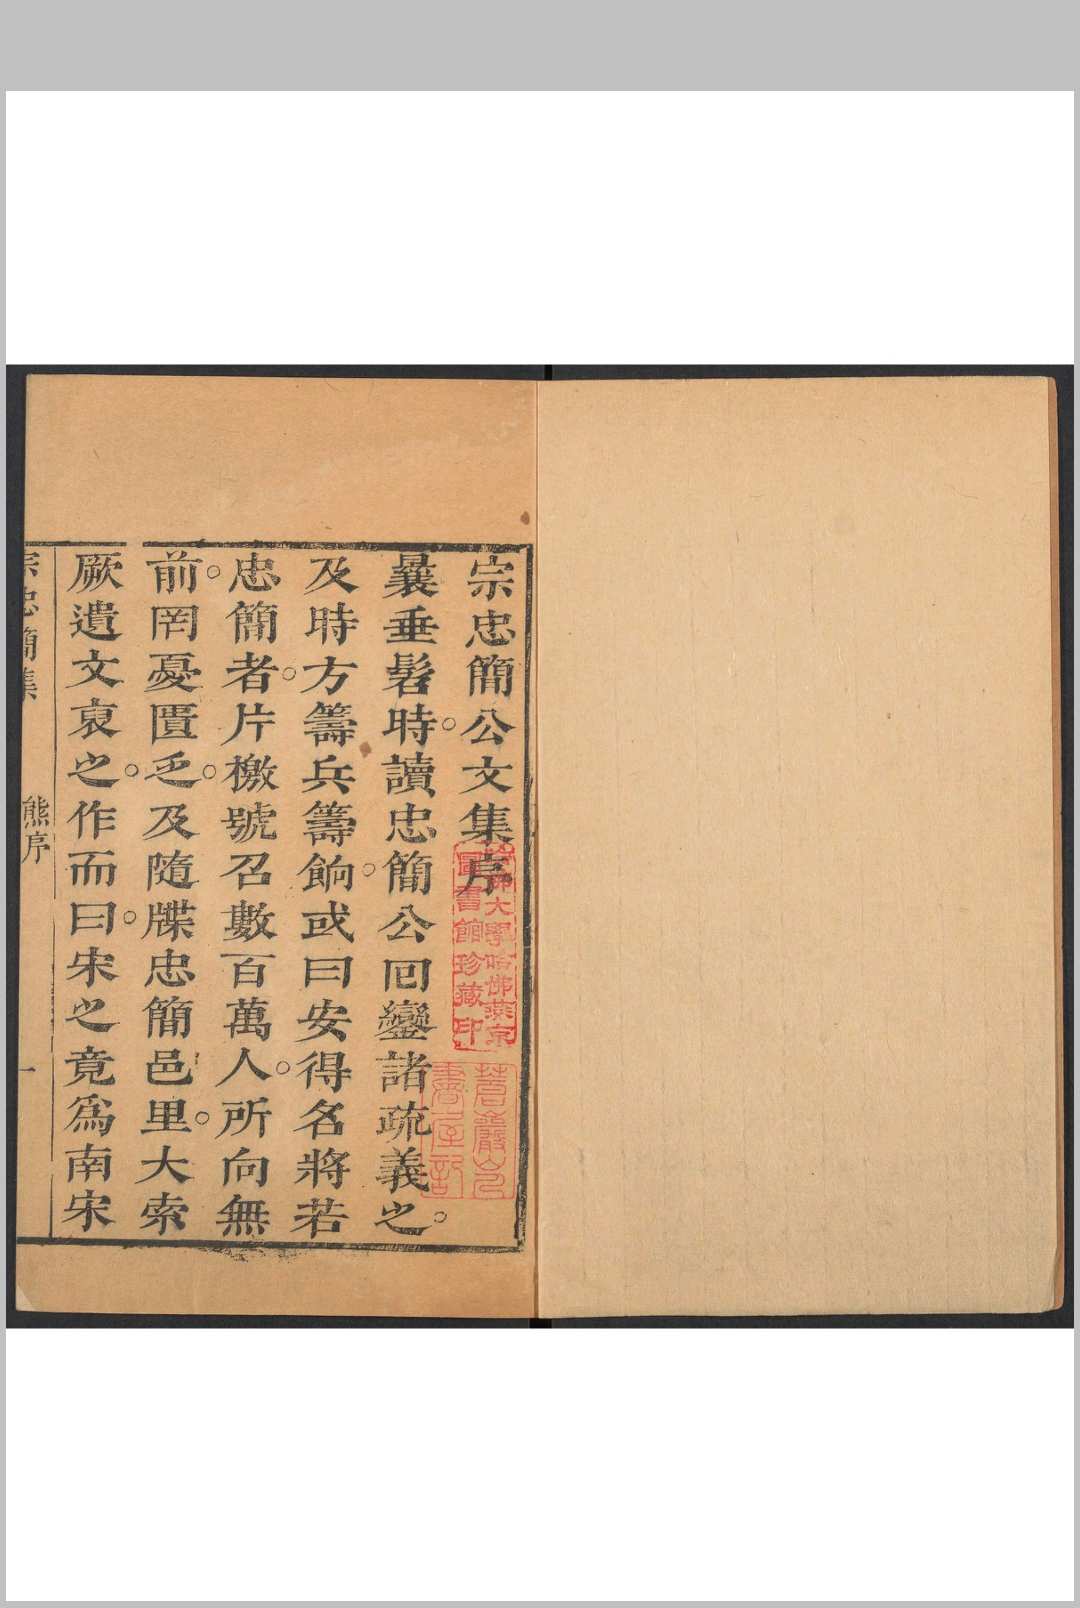 宗忠簡公文集序
曩垂髫時。讀忠簡公回鑾諸疏義之。
及時方籌兵籌餉。或曰安得名將若
忠簡者。片檄號召數百萬人。所向無
前。罔憂匱乏。及隨牒忠簡邑里。大索
厥遺文裒之。作而曰。宋之竟爲南宋
宗忠簡集
熊序
一
哈佛大學哈佛燕京
圖書館珍藏印